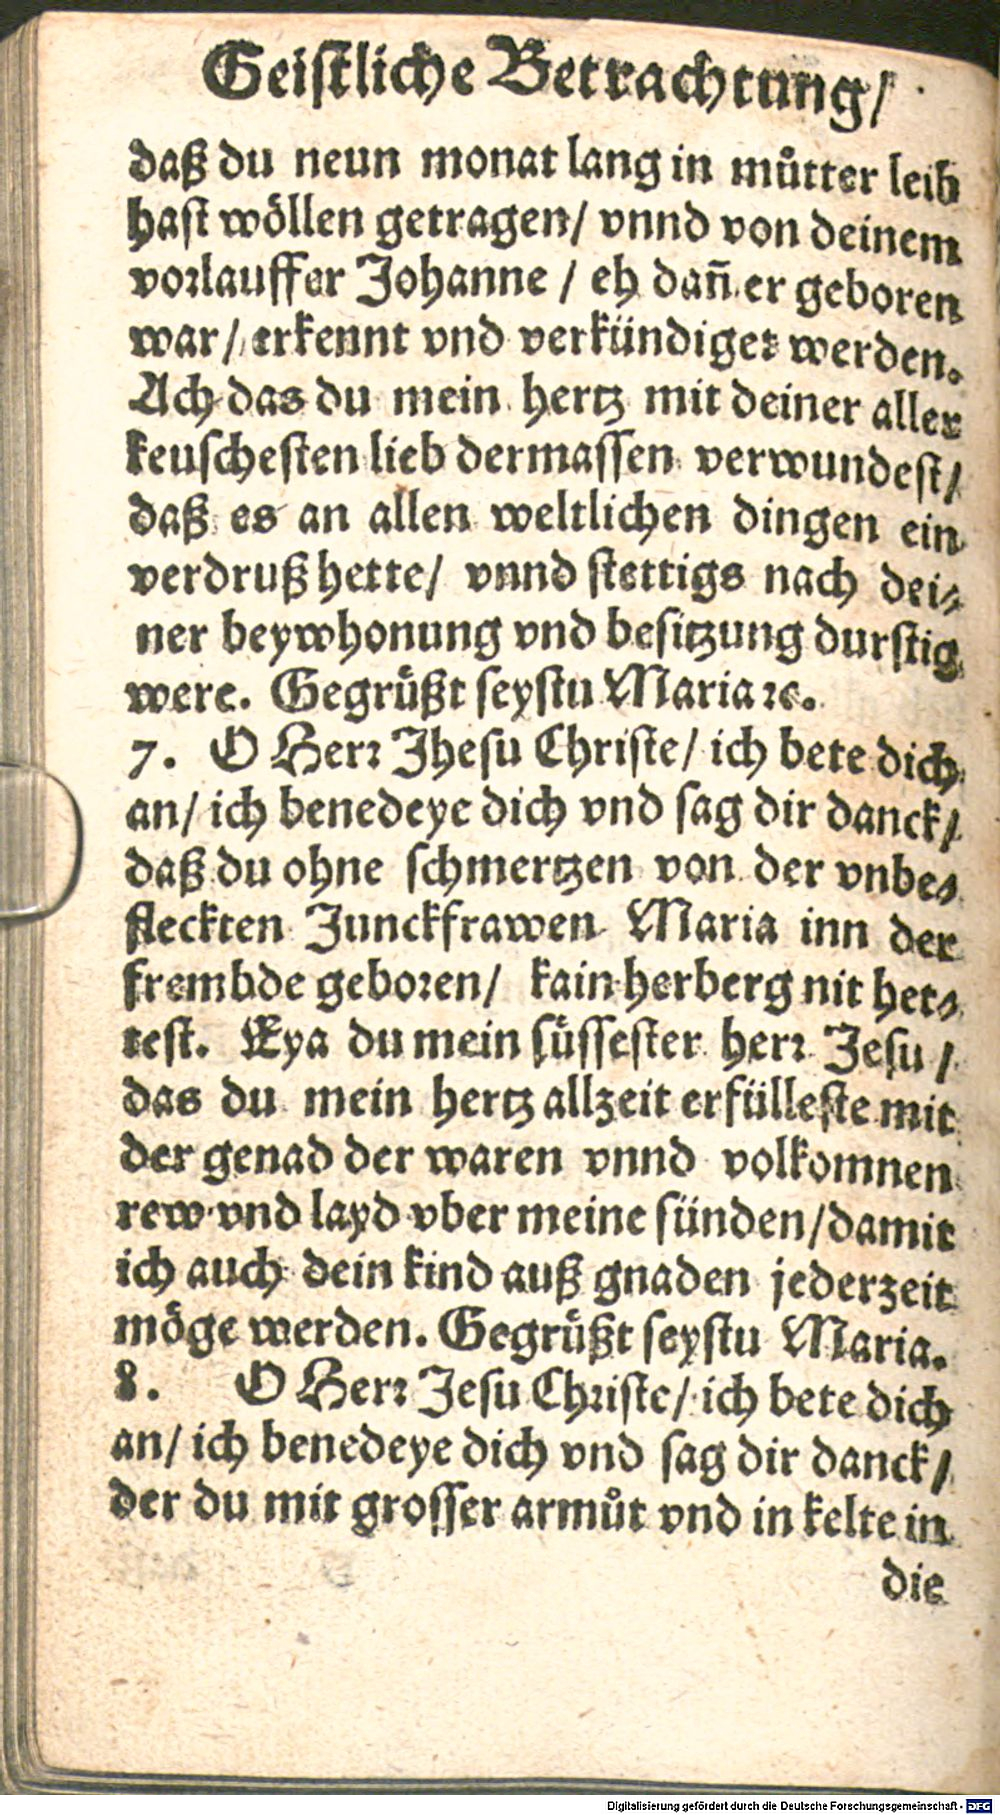 Geistliche Betrachtung/
daß du neun monat lang in můtter leib
hast wöllen getragen/ vnnd von deinem
vorlauffer Johanne / eh dañ er geboren
war/ erkennt vnd verkündiget werden.
Ach das du mein hertz mit deiner aller
keuschesten lieb dermassen verwundest/
daß es an allen weltlichen dingen ein
verdruß hette/ vnnd stettigs nach dei⸗
ner beywhonung vnd besitzung durstig
were. Gegrüßt seystu Maria ꝛc.
7. O Herꝛ Jhesu Christe/ ich bete dich
an/ ich benedeye dich vnd sag dir danck/
daß du ohne schmertzen von der vnbe⸗
fleckten Junckfrawen Maria inn der
frembde geboren/ kain herberg nit het⸗
test. Eya du mein süssester herꝛ Jesu /
das du mein hertz allzeit erfülleste mit
der genad der waren vnnd volkomnen
rew vnd layd vber meine sünden/damit
ich auch dein kind auß gnaden jederzeit
möge werden. Gegrüßt seystu Maria.
8. O Herꝛ Jesu Christe/ ich bete dich
an/ ich benedeye dich vnd sag dir danck/
der du mit grosser armůt vnd in kelte in
die
Digitalisierung gefördert durch die Deutsche Forschungsgemeinschaft - DFG